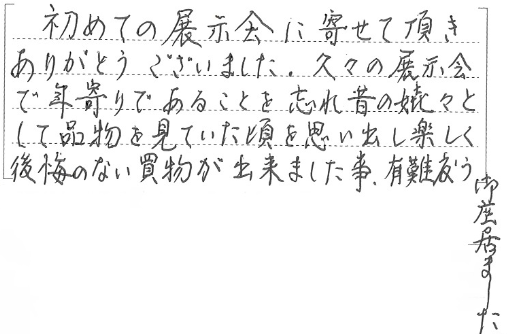 初めての展示会に寄せて頂き
ありがとうございました。久々の展示会
で年寄りであることを忘れ昔の嬉々と
して品物を見ていた頃を思い出し楽しく
後悔のない買物が出来ました事、有難度う
御座居ました